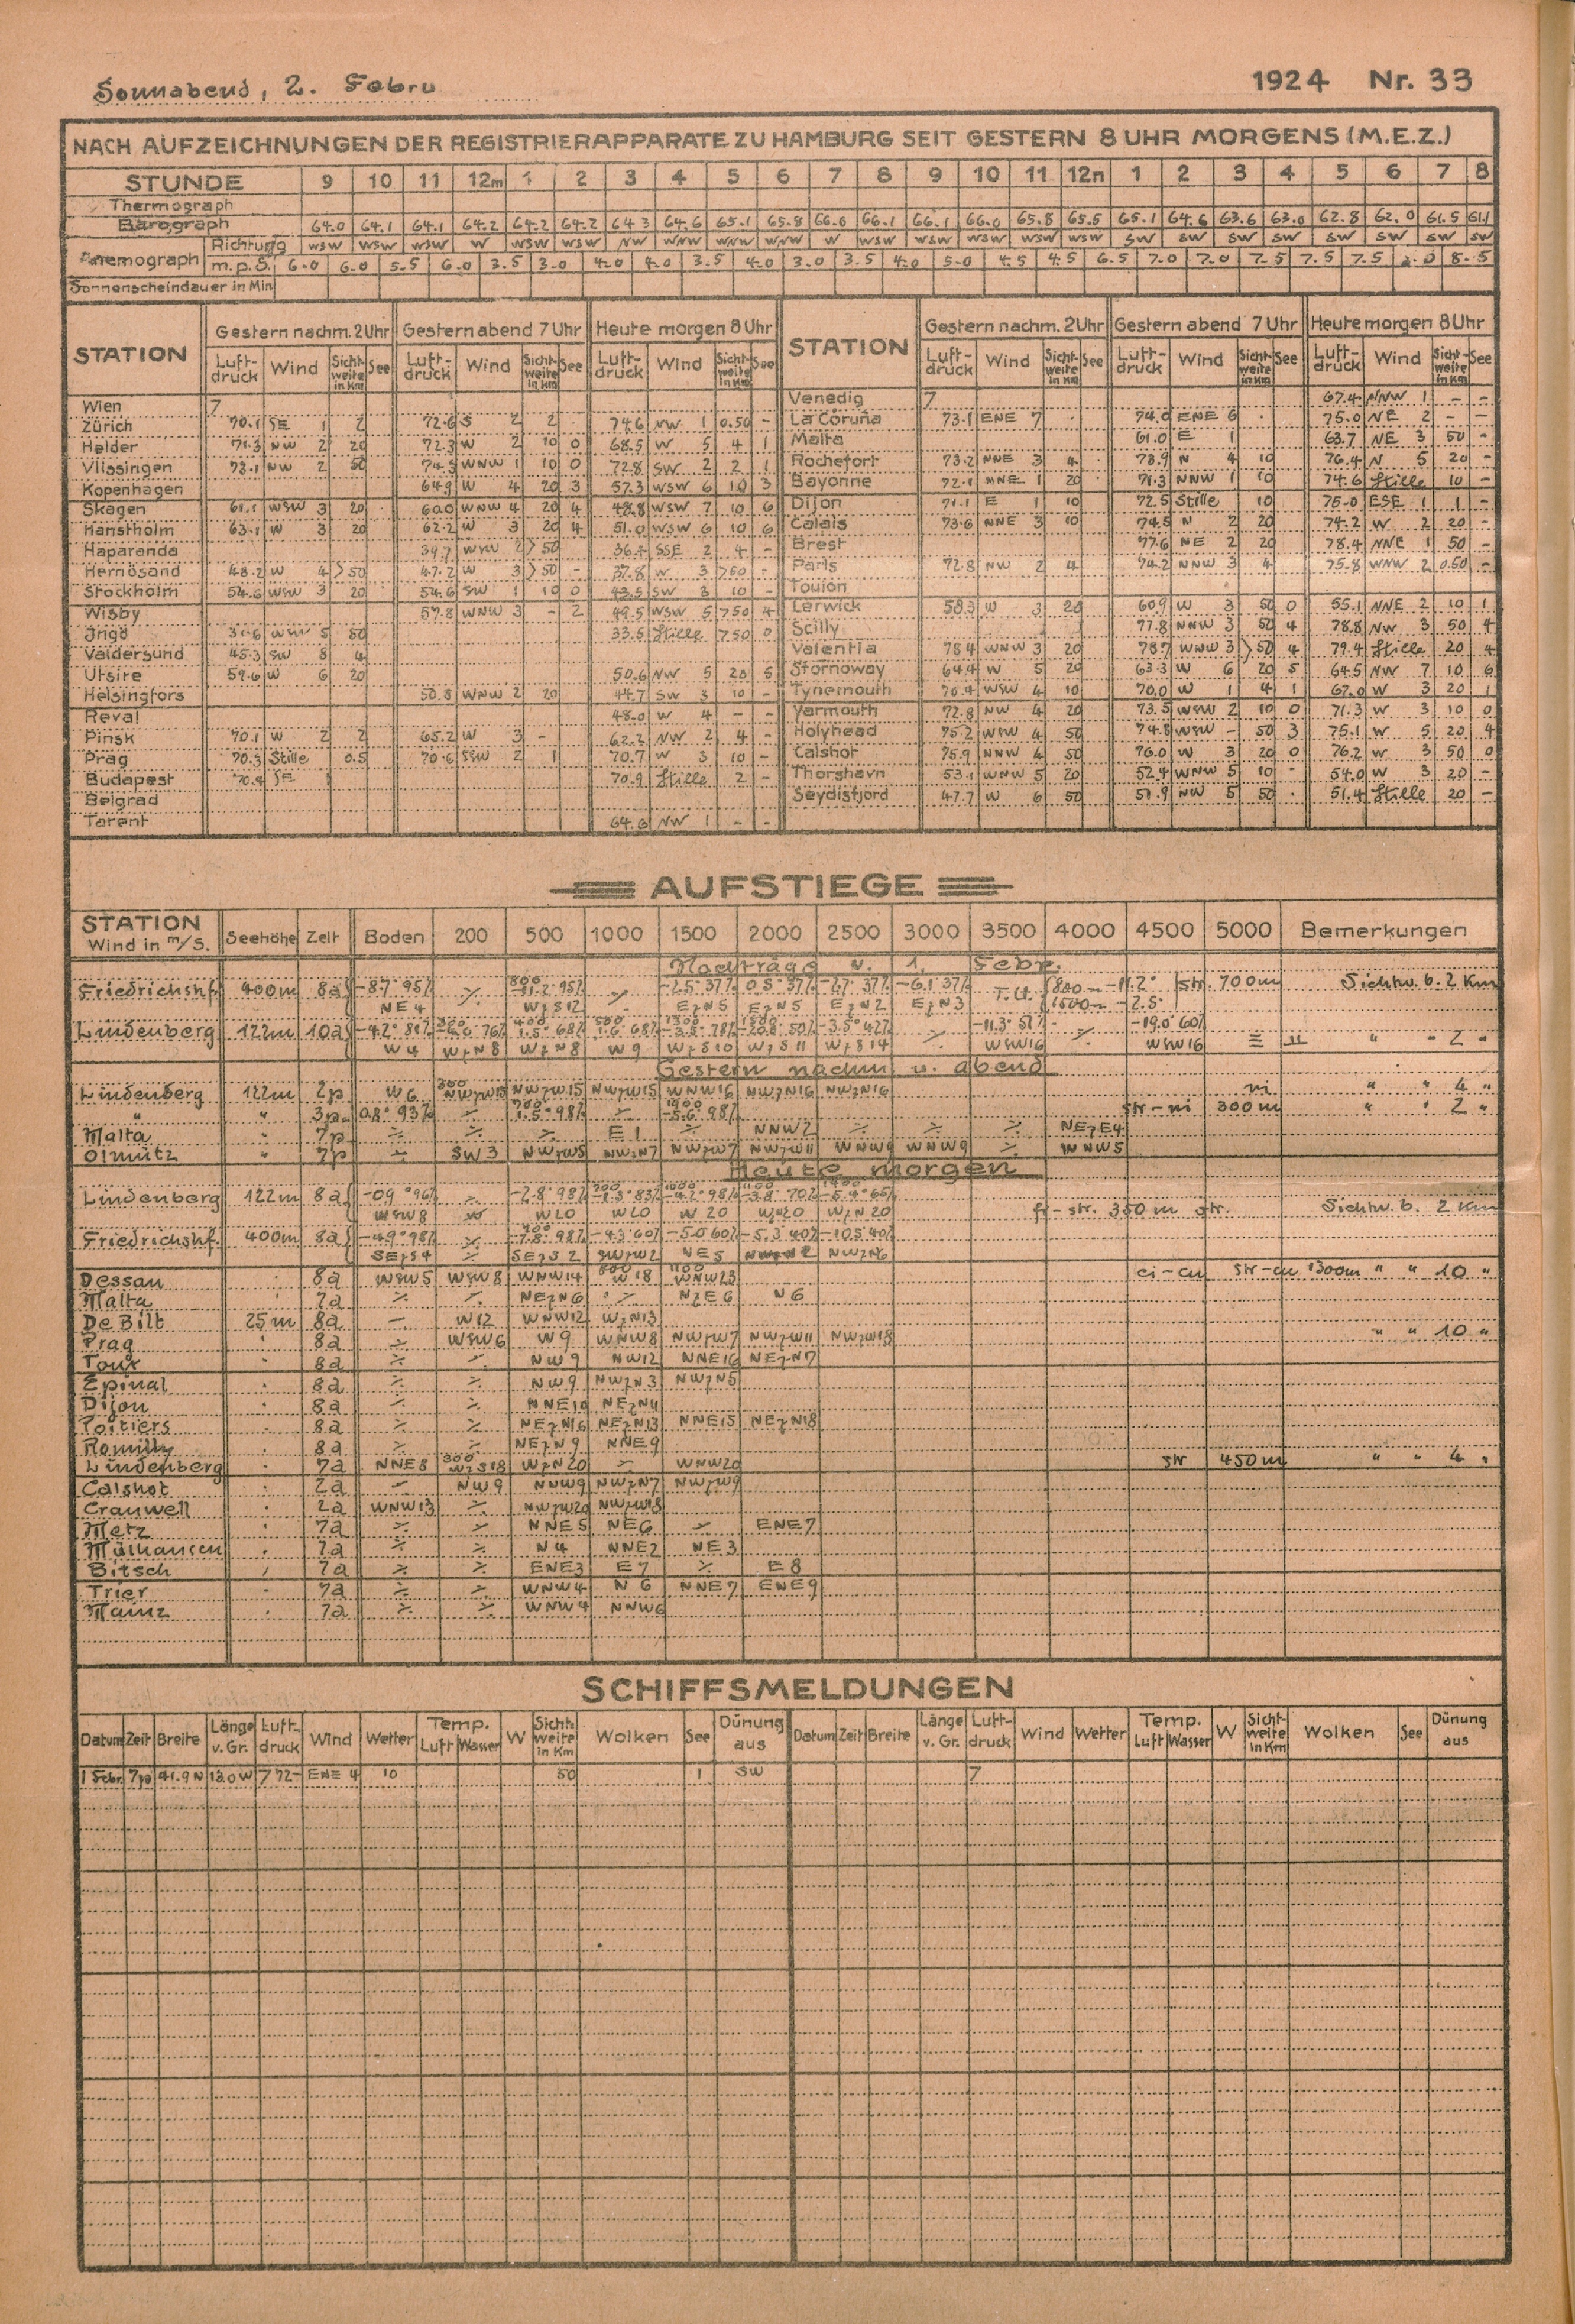 Sonnabend, 2. Febru 1924 Nr. 33
NACH AUFZEICHNUNGEN DER REGISTRIERAPPARATE ZU HAMBURG SEIT GESTERN 8 UHR MORGENS (M.E.Z.)
STUNDE 9 10 11 12m 1 2 3 4 5 6 7 8 9 10 11 12n 1 2 3 4 5 6 7 8
Thermograph
Barograph 64.0 64.1 64.1 64.2 64.2 64.2 64.3 64.6 65.1 65.8 66.0 66.1 66.1 66.0 65.8 65.5 65.1 64.6 63.6 63.0 62.8 62.0 61.5 61.1
Anemograph Richtung WSW WSW WSW W WSW WSW NW WNW WNW WNW W WSW WSW WSW WSW WSW SW SW SW SW SW SW SW SW
m.p.S. 6.0 6.0 5.5 6.0 3.5 3.0 4.0 4.0 3.5 4.0 3.0 3.5 4.0 5.0 4.5 4.5 6.5 7.0 7.0 7.5 7.5 7.5 8.5
Sonnenscheindauer in Min
STATION Gestern nachm. 2 Uhr Gestern abend 7 Uhr Heute morgen 8 Uhr STATION Gestern nachm. 2 Uhr Gestern abend 7 Uhr Heute morgen 8 Uhr
Luft-druck Wind Sicht-weite in Km See Luft-druck Wind Sicht-weite in Km See Luft-druck Wind Sicht-weite in Km See Luft-druck Wind Sicht-weite in Km See Luft-druck Wind Sicht-weite in Km See Luft-druck Wind Sicht-weite in Km See
Wien 7 Venedig 7 67.4 NNW 1 - -
Zürich 70.1 SE 1 2 72.6 S 2 2 74.6 NW 1 0.50 - La Coruña 73.1 ENE 7 74.0 ENE 6 75.0 NE 2 - -
Helder 71.3 NW 2 20 72.3 W 2 10 0 68.5 W 5 4 1 Malta 61.0 E 1 63.7 NE 3 50 -
Vlissingen 73.1 NW 2 50 74.5 WNW 1 10 0 72.8 SW 2 2 1 Rochefort 73.2 NNE 3 4 78.9 N 4 10 76.4 N 5 20 -
Kopenhagen 64.9 W 4 20 3 57.3 WSW 6 10 3 Bayonne 72.1 NNE 1 20 71.3 NNW 1 10 74.6 Stille 10 -
Skagen 61.1 WSW 3 20 60.0 WNW 4 20 4 48.8 WSW 7 10 6 Dijon 71.1 E 1 10 72.5 Stille 10 75.0 ESE 1 1 -
Hanstholm 63.1 W 3 20 62.2 W 3 20 4 51.0 WSW 6 10 6 Calais 73.6 NNE 3 10 74.5 N 2 20 74.2 W 2 20 -
Haparanda 39.7 WSW 2 >50 36.4 SSE 2 4 - Brest 77.6 NE 2 20 78.4 NNE 1 50 -
Hernösand 48.2 W 4 >50 47.2 W 3 >50 - 37.8 W 3 >50 - Paris 72.8 NW 2 4 74.2 NNW 3 4 75.8 WNW 2 0.50 -
Stockholm 54.6 WSW 3 20 54.6 SW 1 10 0 43.5 SW 3 10 - Toulon
Wisby 57.8 WNW 3 - 2 49.5 WSW 5 >50 4 Lerwick 58.3 W 3 20 60.9 W 3 50 0 55.1 NNE 2 10 1
Jngö WSW 5 50 33.5 Stille >50 0 Scilly 77.8 NNW 3 50 4 78.8 NW 3 50 4
Valdersund 45.3 SW 8 4 Valentia 78.4 WNW 3 20 78.7 WNW 3 >50 4 79.4 Stille 20 4
Utsire 59.6 W 6 20 50.6 NW 5 20 5 Stornoway 64.4 W 5 20 63.3 W 6 20 5 64.5 NW 7 10 6
Helsingfors 50.8 WNW 2 20 44.7 SW 3 10 - Tynemouth 70.4 WSW 4 10 70.0 W 1 4 1 67.0 W 3 20 1
Reval 48.0 W 4 - - Yarmouth 72.8 NW 4 20 73.5 WSW 2 10 0 71.3 W 3 10 0
Pinsk 70.1 W 2 2 65.2 W 3 - 62.2 NW 2 4 - Holyhead 75.2 WSW 4 50 74.8 WSW - 50 3 75.1 W 5 20 4
Prag 70.3 Stille 0.5 70.6 SSW 2 1 70.7 W 3 10 - Calshot 75.9 NNW 4 50 76.0 W 3 20 0 76.2 W 3 50 0
Budapest 70.4 SE 1 70.9 Stille 2 - Thorshavn 53.1 WNW 5 20 52.4 WNW 5 10 - 54.0 W 3 20 -
Belgrad Seydisfjord 47.7 W 6 50 51.9 NW 5 50 51.4 Stille 20 -
Tarent 64.6 NW 1 - -
AUFSTIEGE
STATION Wind in m/S. Seehöhe Zeit Boden 200 500 1000 1500 2000 2500 3000 3500 4000 4500 5000 Bemerkungen
Nachträge v. 1. Febr.
Friedrichshf. 400m 8a -8.7° 95% ⁒ 800 -11.2° 95% ⁒ -2.5° 37% 0.5° 37% -2.7° 37% -6.1° 37% T.U. 800m -11.2° str. 700m Sichtw. b. 2 Km
NE 4 WzS12 EzN5 EzN5 EzN2 EzN3 1500m -2.5°
Lindenberg 122m 10a -4.2° 81% 76% 400 1.5° 68% 500 1.6° 68% -3.8° 78% 50% -3.5° 42% ⁒ -11.3° 51% ⁒ -19.0° 60%
W 4 WzN8 WzN8 W 9 WzS10 WzS11 WzS14 WSW16 WSW16 ≡ " " 2 "
Gestern nachm u. abend
Lindenberg 122m 2p W 6 300 NWzW15 NWzW15 NWzW15 WNW16 NWzN16 NWzN16 ni " " 4 "
" " 3p 0.8° 93% ⁒ 700 1.5° 98% ⁒ 1900 -5.6° 98% str-ni 300m " " 2 "
Malta 7p ⁒ ⁒ ⁒ E 1 ⁒ NNW2 ⁒ ⁒ ⁒ NEzE4
Olmütz " 7p ⁒ SW 3 NWzW5 NWzN7 NWzW7 NWzW11 WNW9 WNW9 ⁒ WNW5
Heute morgen
Lindenberg 122m 8a -0.9° 96% ⁒ -2.8° 98% -1.3° 83% -4.2° 98% -3.8° 70% -5.4° 65%
WSW8 W20 W20 W20 WzN20 WzN20 fr-str. 350m str. Sichtw. b. 2 Km
Friedrichshf. 400m 8a -4.9° 98% ⁒ -7.8° 98% -4.3° 60% -5.0° 60% -5.3° 40% -10.5° 40%
SEzS4 ⁒ SEzS2 SWzW2 NE5 NWzN6
Dessau 8a WSW5 WSW8 WNW14 800 W18 1100 WNW23 ci-cu str-cu 1300m " " 10 "
Malta 7a ⁒ ⁒ NEzN6 ⁒ NzE6 N6
De Bilt 25m 8a - W12 WNW12 WzN13
Prag 8a ⁒ WSW6 W9 WNW8 NWzW7 NWzW11 NWzW18 " " 10 "
Toux 8a ⁒ ⁒ NW9 NW12 NNE16 NEzN7
Epinal 8a ⁒ ⁒ NW9 NWzN3 NWzN5
Dijon 8a ⁒ ⁒ NNE10 NEzN11
Poitiers 8a ⁒ ⁒ NEzN16 NEzN13 NNE15 NEzN18
Romilly 8a ⁒ ⁒ NEzN9 NNE9
Lindenberg 7a NNE8 300 WzS18 WzN20 ⁒ WNW20 str 450m " " 4 "
Calshot 2a - NW9 NNW9 NWzN7 NWzW9
Cranwell 2a WNW13 ⁒ NWzW20 NWzW18
Metz 7a ⁒ ⁒ NNE5 NE6 ⁒ ENE7
Mülhausen 7a ⁒ ⁒ N4 NNE2 NE3
Bitsch 7a ⁒ ⁒ ENE3 E7 ⁒ E8
Trier 7a ⁒ ⁒ WNW4 N6 NNE7 ENE9
Mainz 7a ⁒ ⁒ WNW4 NNW6
SCHIFFSMELDUNGEN
Datum Zeit Breite Länge v. Gr. Luft-druck Wind Wetter Temp. Luft Wasser W Sicht-weite in Km Wolken See Dünung aus Datum Zeit Breite Länge v. Gr. Luft-druck Wind Wetter Temp. Luft Wasser W Sicht-weite in Km Wolken See Dünung aus
1 Febr. 7p 41.9 N 13.0 W 772- ENE 4 10 50 1 SW 7